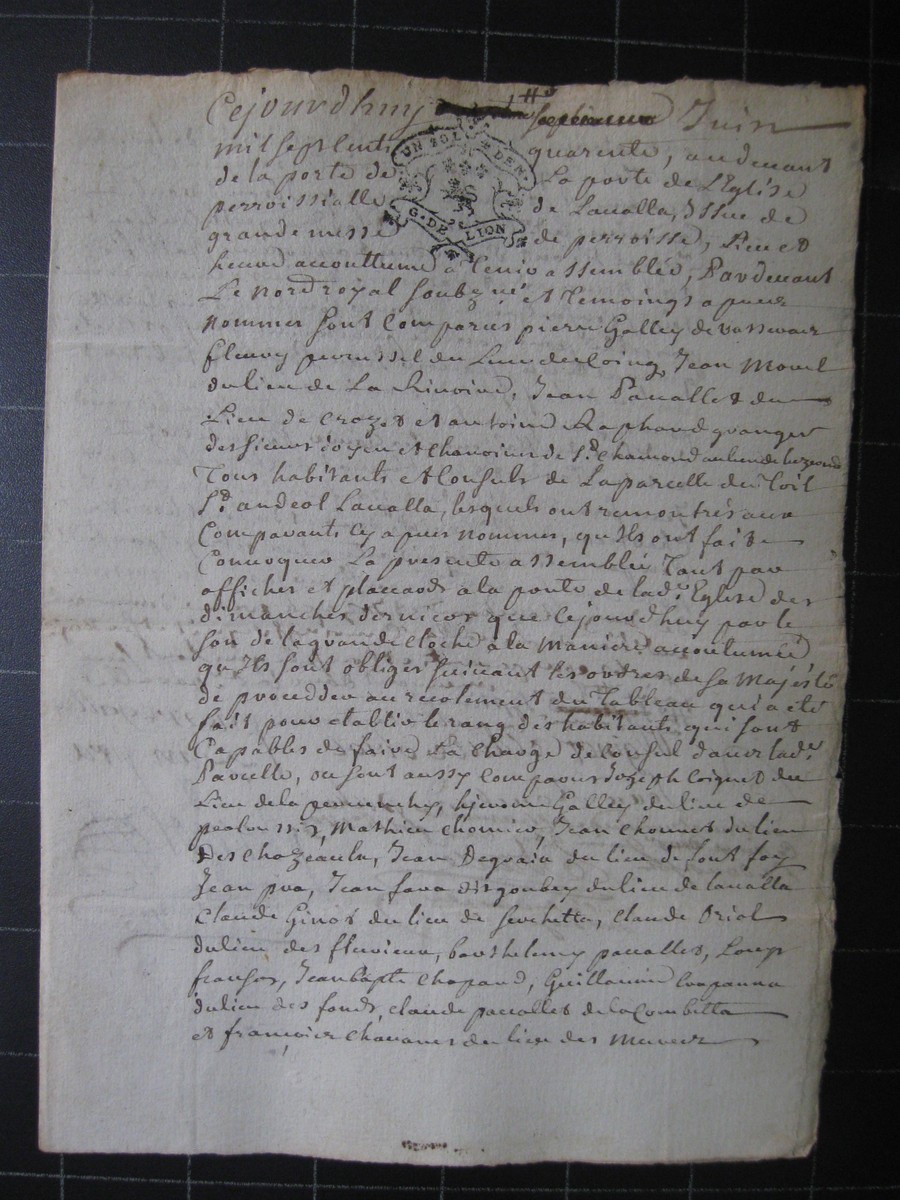 Cejourdhuy Juin
mil sept cent quarente, audevant
de la porte de La porte de L'Eglise
perroissialle de Lavalla, Issue de
grande messe de perroisse, Lieu et
heure accouttumé a tenir assemblée, Pardevant
Le Nore royal soubzné. et temoings apres
nommes sont Comparus pierre Galley de
fleury peyrussel du Lieu de Jean Morel
du lieu de La Rivoire, Jean Pacallet du
Lieu de Crozet et antoine Raphard granger
des sieurs doyen et chanoines de St. Chamond au lieu de
Tous habitants et Consuls de La parcelle du Toil
St. andeol Lavalla, lesquels ont remontrés aux
Comparants Cy apres nommes, qu'Ils ont fait
Convoquer La presente assemblée Tant par
affiches et placcards a la porte de lade. Eglise des
dimanches derniers que Cejourdhuy par le
son de la grande Cloche a la maniere accoutumée
qu'Ils sont obliges suivant les ordres de sa Majésté
de proceddér au recolement du Tableau qui a eté
fait pour etablir le rang des habitants qui sont
Capables de faire La Charge de Consul dans lade.
Parcelle, ou sont aussy Comparus Jozeph Coignet du
Lieu de la Galley du lieu de
Mathieu Chomier, Jean Chonnet du lieu
des Chazeaulx, Jean Degrain du lieu de font foy
Jean pra, Jean fara du lieu de lavalla
Claude Ginot du lieu de Sardiette, Claude Oriol
du lieu des fluvieux, barthelemy pacallet, Louys
Jean bapte Chapard, Guillaume
du lieu des fonds, claude pacallet de la Combetta
et françois Chavanes du lieu des
UN SOL
DEN.
G. DE LION